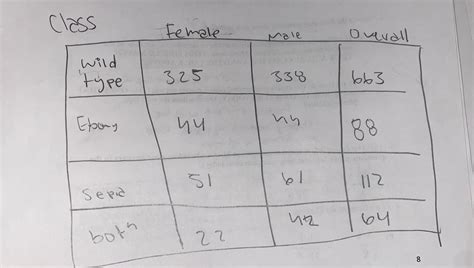 Class
Female Male Overall
Wild type 325 338 663
Ebony 44 44 88
Sepia 51 61 112
both 22 42 64
8